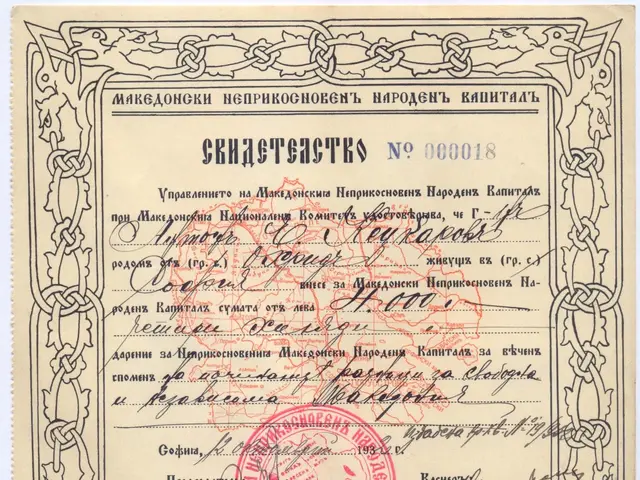 МАКЕДОНСКИ НЕПРИКОСНОВЕНЪ НАРОДЕНЪ КАПИТАЛЪ
СВИДЕТЕЛСТВО № 000018
Управлението на Македонския Неприкосновенъ Народенъ Капиталъ
при Македонския Националенъ Комитетъ удостовѣрява, че Г-
родомъ отъ (гр. с.) Охридъ живущъ въ (гр. с.)
София внесе за Македонски Неприкосновенъ На-
роденъ Капиталъ сумата отъ лева 4.000
хиляди
дарение за Неприкосновения Македонски Народенъ Капиталъ за вѣченъ
споменъ на за свободна
и независима Македония
София, 12 193
Касиеръ